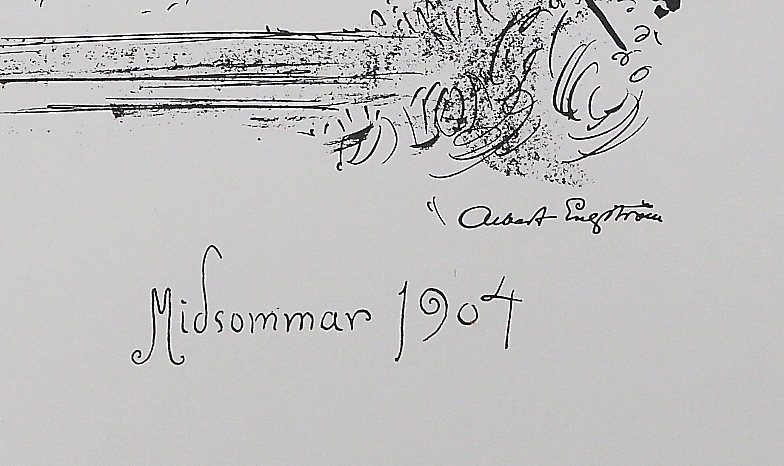 Albert Engström
Midsommar 1904